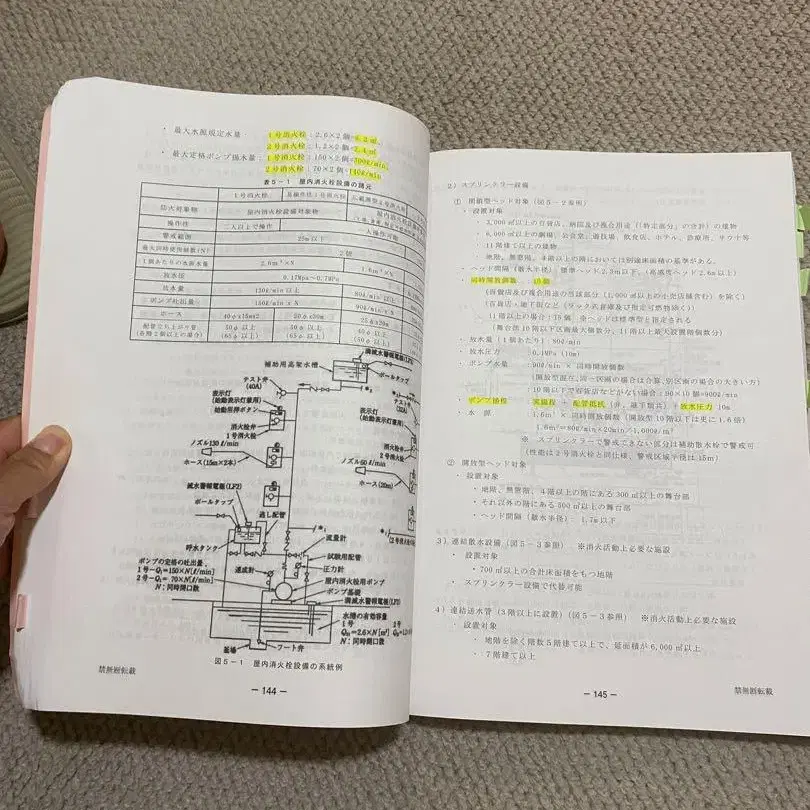 ・ 最大水源規定水量 : 1号消火栓:2.6×2個=5.2㎥,
2号消火栓:1.2×2個=2.4㎥
・ 最大定格ポンプ揚水量:1号消火栓:150×2個=300ℓ/min,
2号消火栓:70×2個=140ℓ/min
表5-1 屋内消火栓設備の諸元
1号消火栓 易操作性1号消火栓
防火対象物 屋内消火栓設備対象物
操作性 二人以上で操作 一人操作可能
警戒範囲 25m以下
最大同時使用個数(N) 2個
1個あたりの水源水量 2.6㎥×N 1.6㎥×N
放水圧 0.17MPa~0.7MPa
放水量 130ℓ/min以上 80ℓ/min以上
ポンプ吐出量 150ℓ/min×N 90ℓ/min×N
ホース 40φx15mx2 30φx30m 25φx20m
配管立ち上がり管 50φ以上 50φ以上 40φ以上
(各階2個以上の場合) (65φ以上) (65φ以上) (50φ以上)
補助用高架水槽
満減水警報電極(LF3)
ボールタップ
テスト弁
(40A)
表示灯
(始動表示灯兼用)
始動用押ボタン
消火栓弁
1号消火栓
ノズル130ℓ/min
ホース(15m×2本)
ノズル60ℓ/min
2号消火栓
ホース(20m)
減水警報電極(LF2)
ボールタップ
逃し配管
呼水タンク
流量計
試験用配管
圧力計
連成計
屋内消火栓用ポンプ
ポンプ基礎
ポンプの定格の吐出量,
1号−Q₁=150×N[ℓ/min]
2号−Q₁= 70×N[ℓ/min]
N:同時開口数
水槽の有効容量
1号
2号
N:同時開口数
釜場
フート弁
図5-1 屋内消火栓設備の系統例
禁無断転載
- 144 -
2) スプリンクラー設備
① 閉鎖型ヘッド対象 (図5-2参照)
・ 設置対象
・ 3,000㎡以上の百貨店、病院及び複合用途(「特定部分」の世界)の建物
・ 6,000㎡以上の劇場、公会堂、遊技場、飲食店、ホテル、診療所、サウナ等
・ 11階建て以上の建物
・ 地階、無窓階、4階以上の階においては別途床面積の基準がある。
・ ヘッド間隔(散水半径) 標準ヘッド2.3m以下、(高感度ヘッド2.6m以上)
・ 同時開放個数 : 15個
(百貨店及び複合用途の当該部分(1,000㎡以上の小売店舗含む)を除く)
(11階以上の場合:15個
(舞台部10階下区画最大個数分、11階以上最大設置階個数分)
・ 放水量(1個あたり):80ℓ/min
・ 放水圧力 : 0.1MPa (10m)
・ ポンプ水量 : 90ℓ/min × 同時開放個数
(開放型混在、同一区画の場合は合算、別区画の場合の大きい方)
(10階以下で百貨店などがない場合:90×10個=900ℓ/min)
・ ポンプ揚程 : 実揚程 + 配管抵抗(弁、継手類共) + 放水圧力10m
・ 水源 : 1.6㎥ × 同時開放個数 (開放型10階以下は更に1.6倍)
1.6㎥=80ℓ/min×20min=1,600ℓ/㎥
※ スプリンクラーで警戒できない部分は補助散水栓で警戒可
(性能は2号消火栓と同仕様、警戒区域半径は15m)
② 開放型ヘッド対象
・ 設置対象
・ 地階、無窓階、4階以上の階にある300㎡以上の舞台部
・ それ以外の階にある500㎡以上の舞台部
・ ヘッド間隔(散水半径)、1.7m以下
3) 連結散水設備 (図5-3参照) ※消火活動上必要な施設
・ 設置対象
・ 700㎡以上の合計床面積をもつ地階
・ スプリンクラー設備で代替可能
4) 連結送水管 (3階以上に設置) (図5-3参照) ※消火活動上必要な施設
・ 設置対象
・ 地階を除く階数5階建て以上で、延面積が6,000㎡以上
・ 7階建て以上
- 145 -
禁無断転載